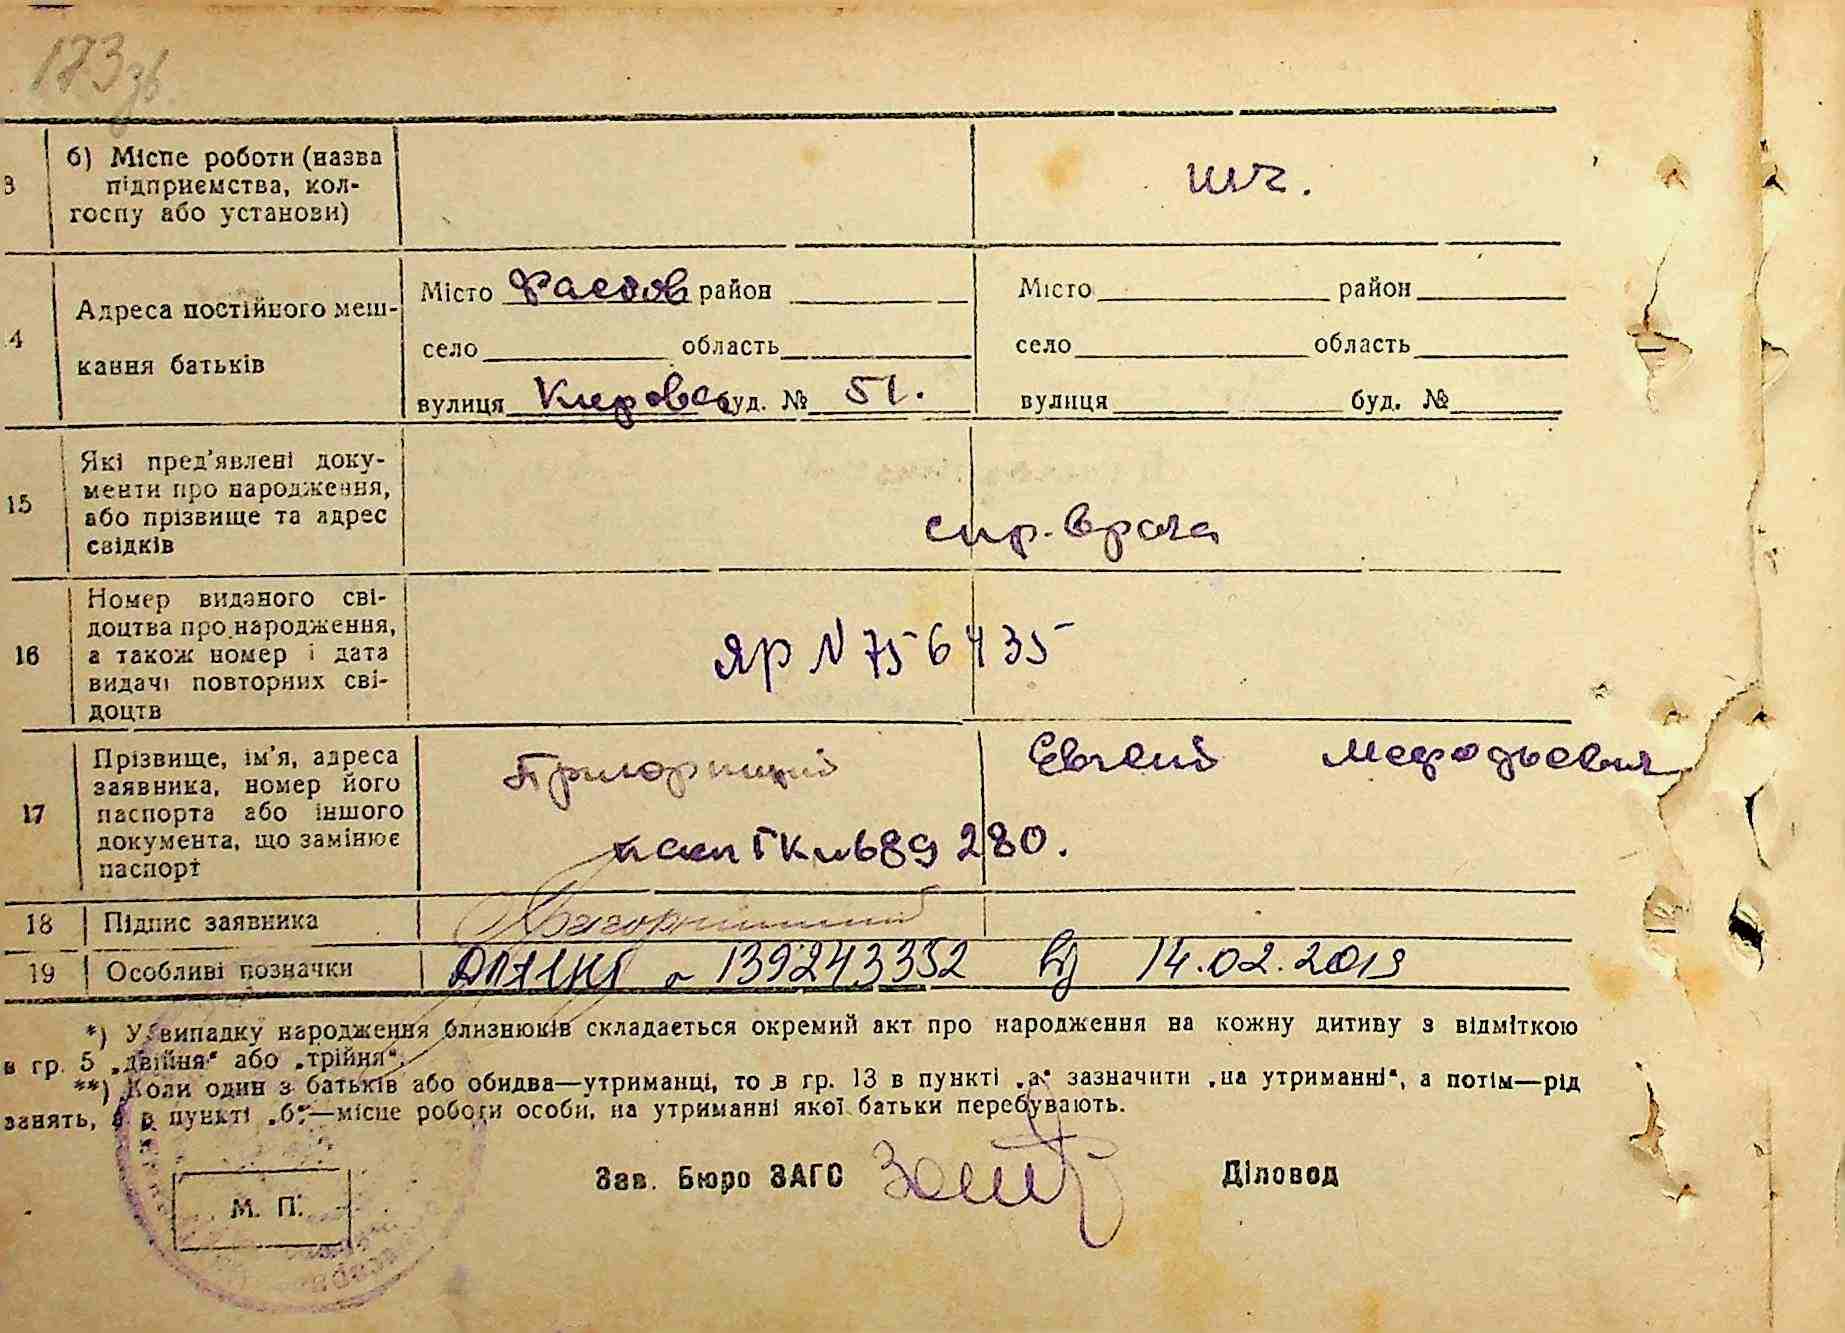 173зв.
3 б) Місце роботи (назва
підприємства, кол-
госпу або установи)
шч.
4 Адреса постійного меш-
кання батьків
Місто Фастов район Місто район
село область село область
вулиця Кирова буд. № 51. вулиця буд. №
15 Які пред'явлені доку-
менти про народження,
або прізвище та адрес
свідків
спр. врача
16 Номер виданого сві-
доцтва про народження,
а також номер і дата
видачі повторних сві-
доцтв
ЯР N 756435
17 Прізвище, ім'я, адреса
заявника, номер його
паспорта або іншого
документа, що замінює
паспорт
Евгений Мефодьевич
689280.
18 Підпис заявника
19 Особливі позначки 139243352 14.02.2019
*) У випадку народження близнюків складається окремий акт про народження на кожну дитину з відміткою
в гр. 5 „двійня“ або „трійня“.
**) Коли один з батьків або обидва—утриманці, то в гр. 13 в пункті „а“ зазначити „на утриманні“, а потім—рід
занять, а в пункті „б“—місце роботи особи, на утриманні якої батьки перебувають.
Зав. Бюро ЗАГС Діловод
М. П.